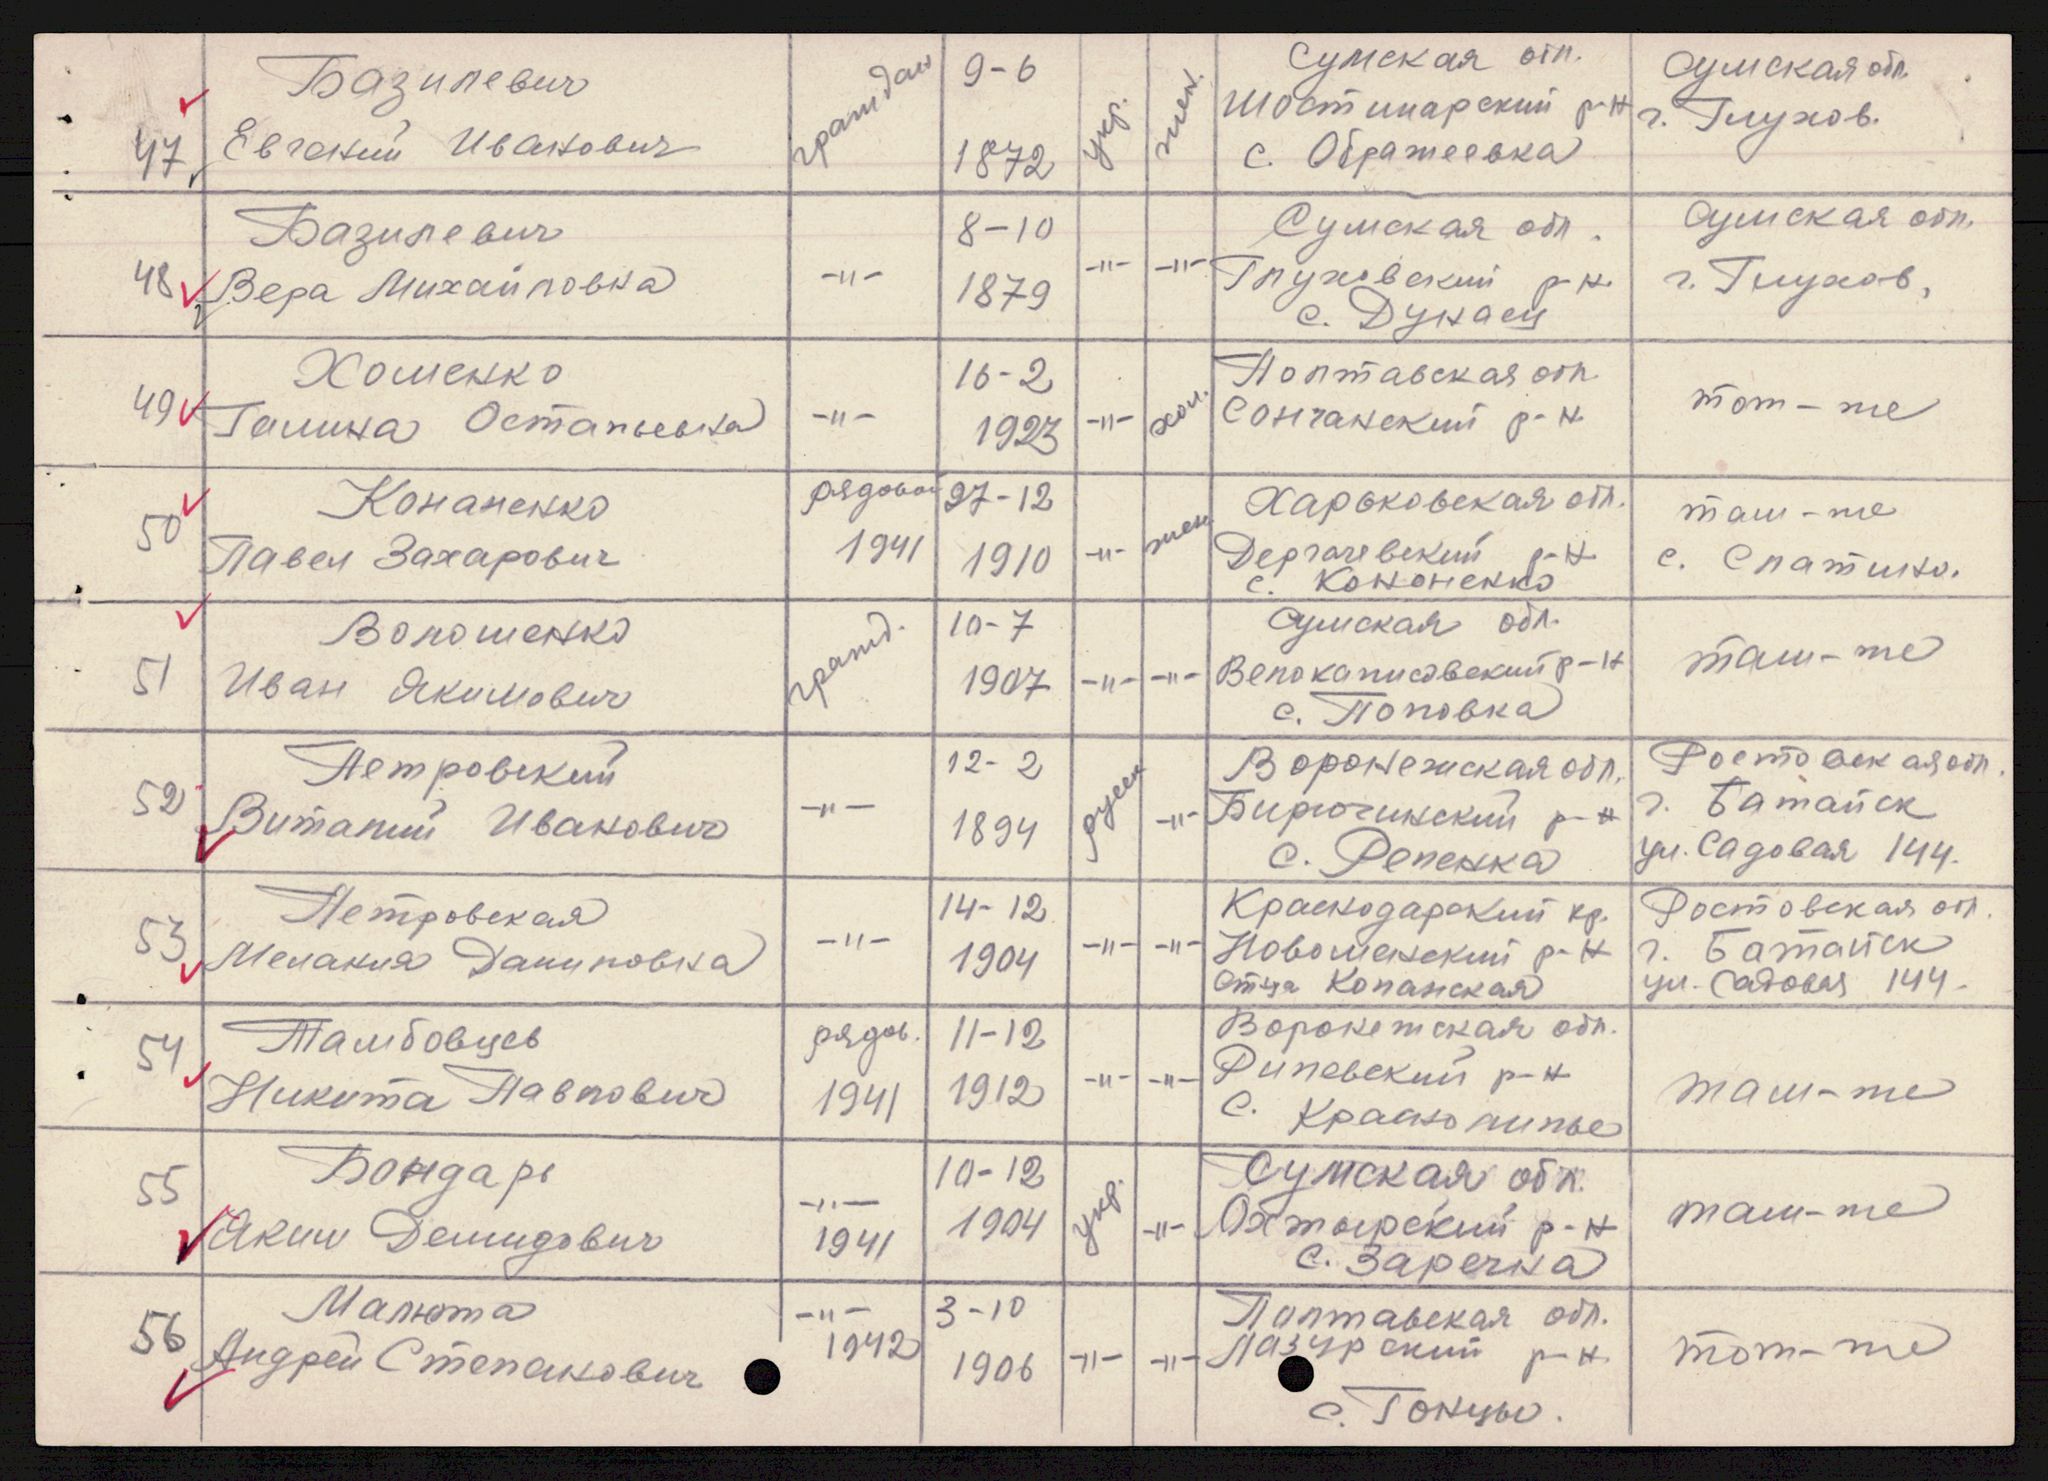 47 Базилевич
Евгений Иванович
граждан
9-6
1872
укр.
жен.
Сумская обл.
Шосткинский р-н
с. Ображеевка
Сумская обл.
г. Глухов.
48 Базилевич
Вера Михайловна
-"-
8-10
1879
-"-
-"-
Сумская обл.
Глуховский р-н.
с. Дунаец
Сумская обл.
г. Глухов,
49 Хоменко
Галина Остапьевна
-"-
16-2
1923
-"-
хол.
Полтавская обл
Сончанский р-н
том-же
50 Конаненко
Павел Захарович
рядовой
1941
27-12
1910
-"-
жен
Харьковская обл.
Дергачевский р-н
с. Кононенко
там-же
с. Слатино.
51 Волошенко
Иван Якимович
гражд.
10-7
1907
-"-
-"-
Сумская обл.
Велокаписовский р-н
с. Поповка
там-же
52 Петровский
Виталий Иванович
-"-
12-2
1894
русск
-"-
Воронежская обл.
Бирючинский р-н
с. Репенка
Ростовская обл.
г. Батайск
ул. Садовая 144.
53 Петровская
Мелания Даниловна
-"-
14-12
1904
-"-
-"-
Краснодарский кр.
Новоменский р-н
ст-ца Копанская
Ростовская обл.
г. Батайск
ул. Садовая 144.
54 Тамбовцев
Никита Павлович
рядов.
1941
11-12
1912
-"-
-"-
Воронежская обл.
Рипевский р-н
с. Краснолипье
там-же
55 Бондарь
Яким Демидович
-"-
1941
10-12
1904
укр.
-"-
Сумская обл.
Охтырский р-н
с. Заречка
там-же
56 Малюта
Андрей Степанович
-"-
1942
3-10
1906
-"-
-"-
Полтавская обл.
Лазурский р-н
с. Гонцы.
том-же